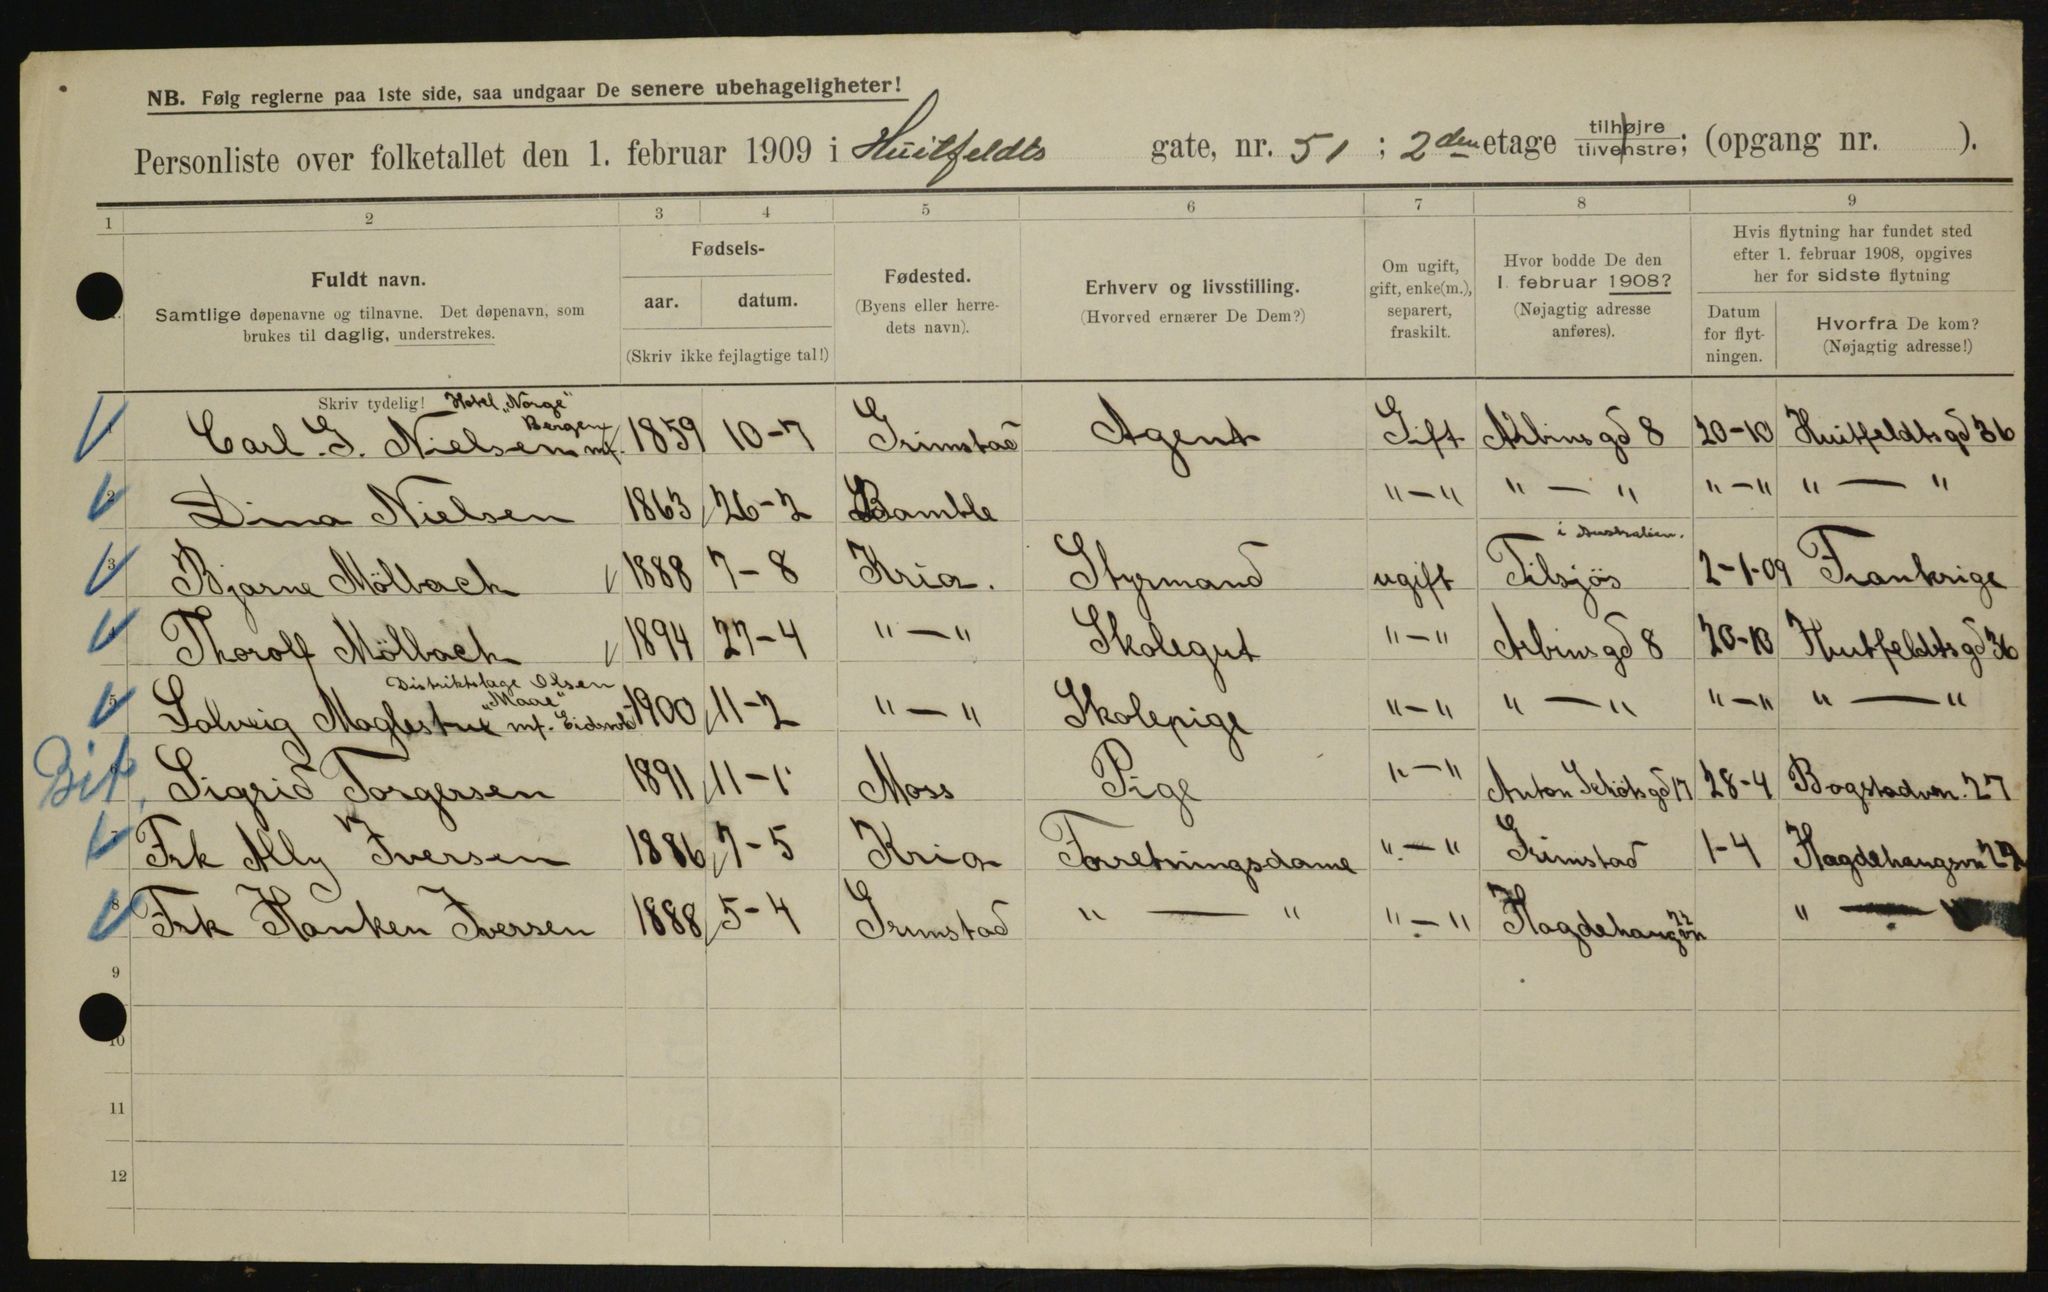 NB. Følg reglerne paa 1ste side, saa undgaar De senere ubehageligheter!
Personliste over folketallet den 1. februar 1909 i Huitfeldts gate, nr. 51 ; 2den etage tilhøjre tilvenstre; (opgang nr. ).
1 2 3 4 5 6 7 8 9
Fuldt navn.
Samtlige døpenavne og tilnavne. Det døpenavn, som
brukes til daglig, understrekes.
Fødsels-
aar. datum.
(Skriv ikke fejlagtige tal!)
Fødested.
(Byens eller herre-
dets navn).
Erhverv og livsstilling.
(Hvorved ernærer De Dem?)
Om ugift,
gift, enke(m.),
separert,
fraskilt.
Hvor bodde De den
1. februar 1908?
(Nøjagtig adresse
anføres).
Hvis flytning har fundet sted
efter 1. februar 1908, opgives
her for sidste flytning
Datum
for flyt-
ningen.
Hvorfra De kom?
(Nøjagtig adresse!)
Skriv tydelig! Hotel „Norge"
Bergen
Carl. G. Nielsen mf. 1859 10-7 Grimstad Agent Gift Arbins gd 8 20-10 Huitfeldts gd 36
2 Dina Nielsen 1863 26-2 Bamble "-" "-" "-" "-"
i Australien.
3 Bjarne Mölback 1888 7-8 Kria. Styrmand ugift Tilsjös 2-1-09 Frankrige
Thorolf Mölback 1894 27-4 "-" Skolegut "-" Arbins gd 8 20-10 Huitfeldts gd 36
Distriktslæge Olsen
"Maae"
5 Solveig Maglestue mf. Eidsvold 1900 11-2 "-" Skolepige "-" "-" "-" "-"
Bit. Sigrid Torgersen 1891 11-1 Moss Pige "-" Anton Schöts gd 17 28-4 Bogstadvn. 27
7 Frk Ally Iversen 1886 7-5 Kria Forretningsdame "-" Grimstad 1-4 Hagdehaugsvn 22
8 Frk Hanken Iversen 1888 5-4 Grimstad "-" "-" Hagdehaugsvn 22 "-"
9
10
11
12